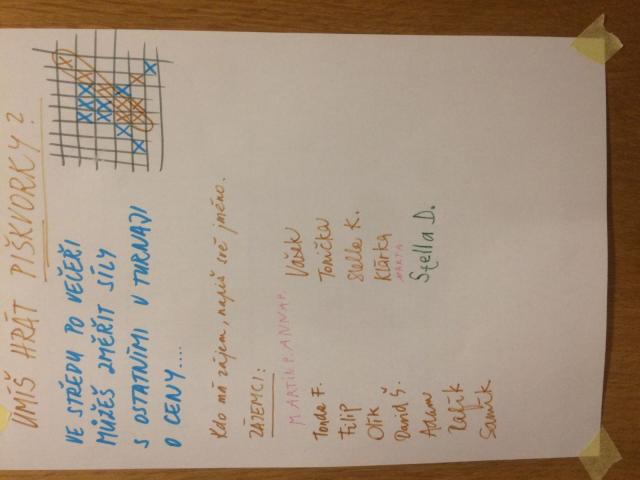 UMÍŠ HRÁT PIŠKVORKY?
VE STŘEDU PO VEČEŘI
MŮŽEŠ ZMĚŘIT SÍLY
S OSTATNÍMI V TURNAJI
O CENY....
Kdo má zájem, napiš své jméno.
ZÁJEMCI:
MARTIN P. ANNA P.
Tonda F.
Filip
Otík
David Š.
Adam
Rafík
Samík
Vašek
Tonička
Stella K.
Klárka
MARTA
Stella D.